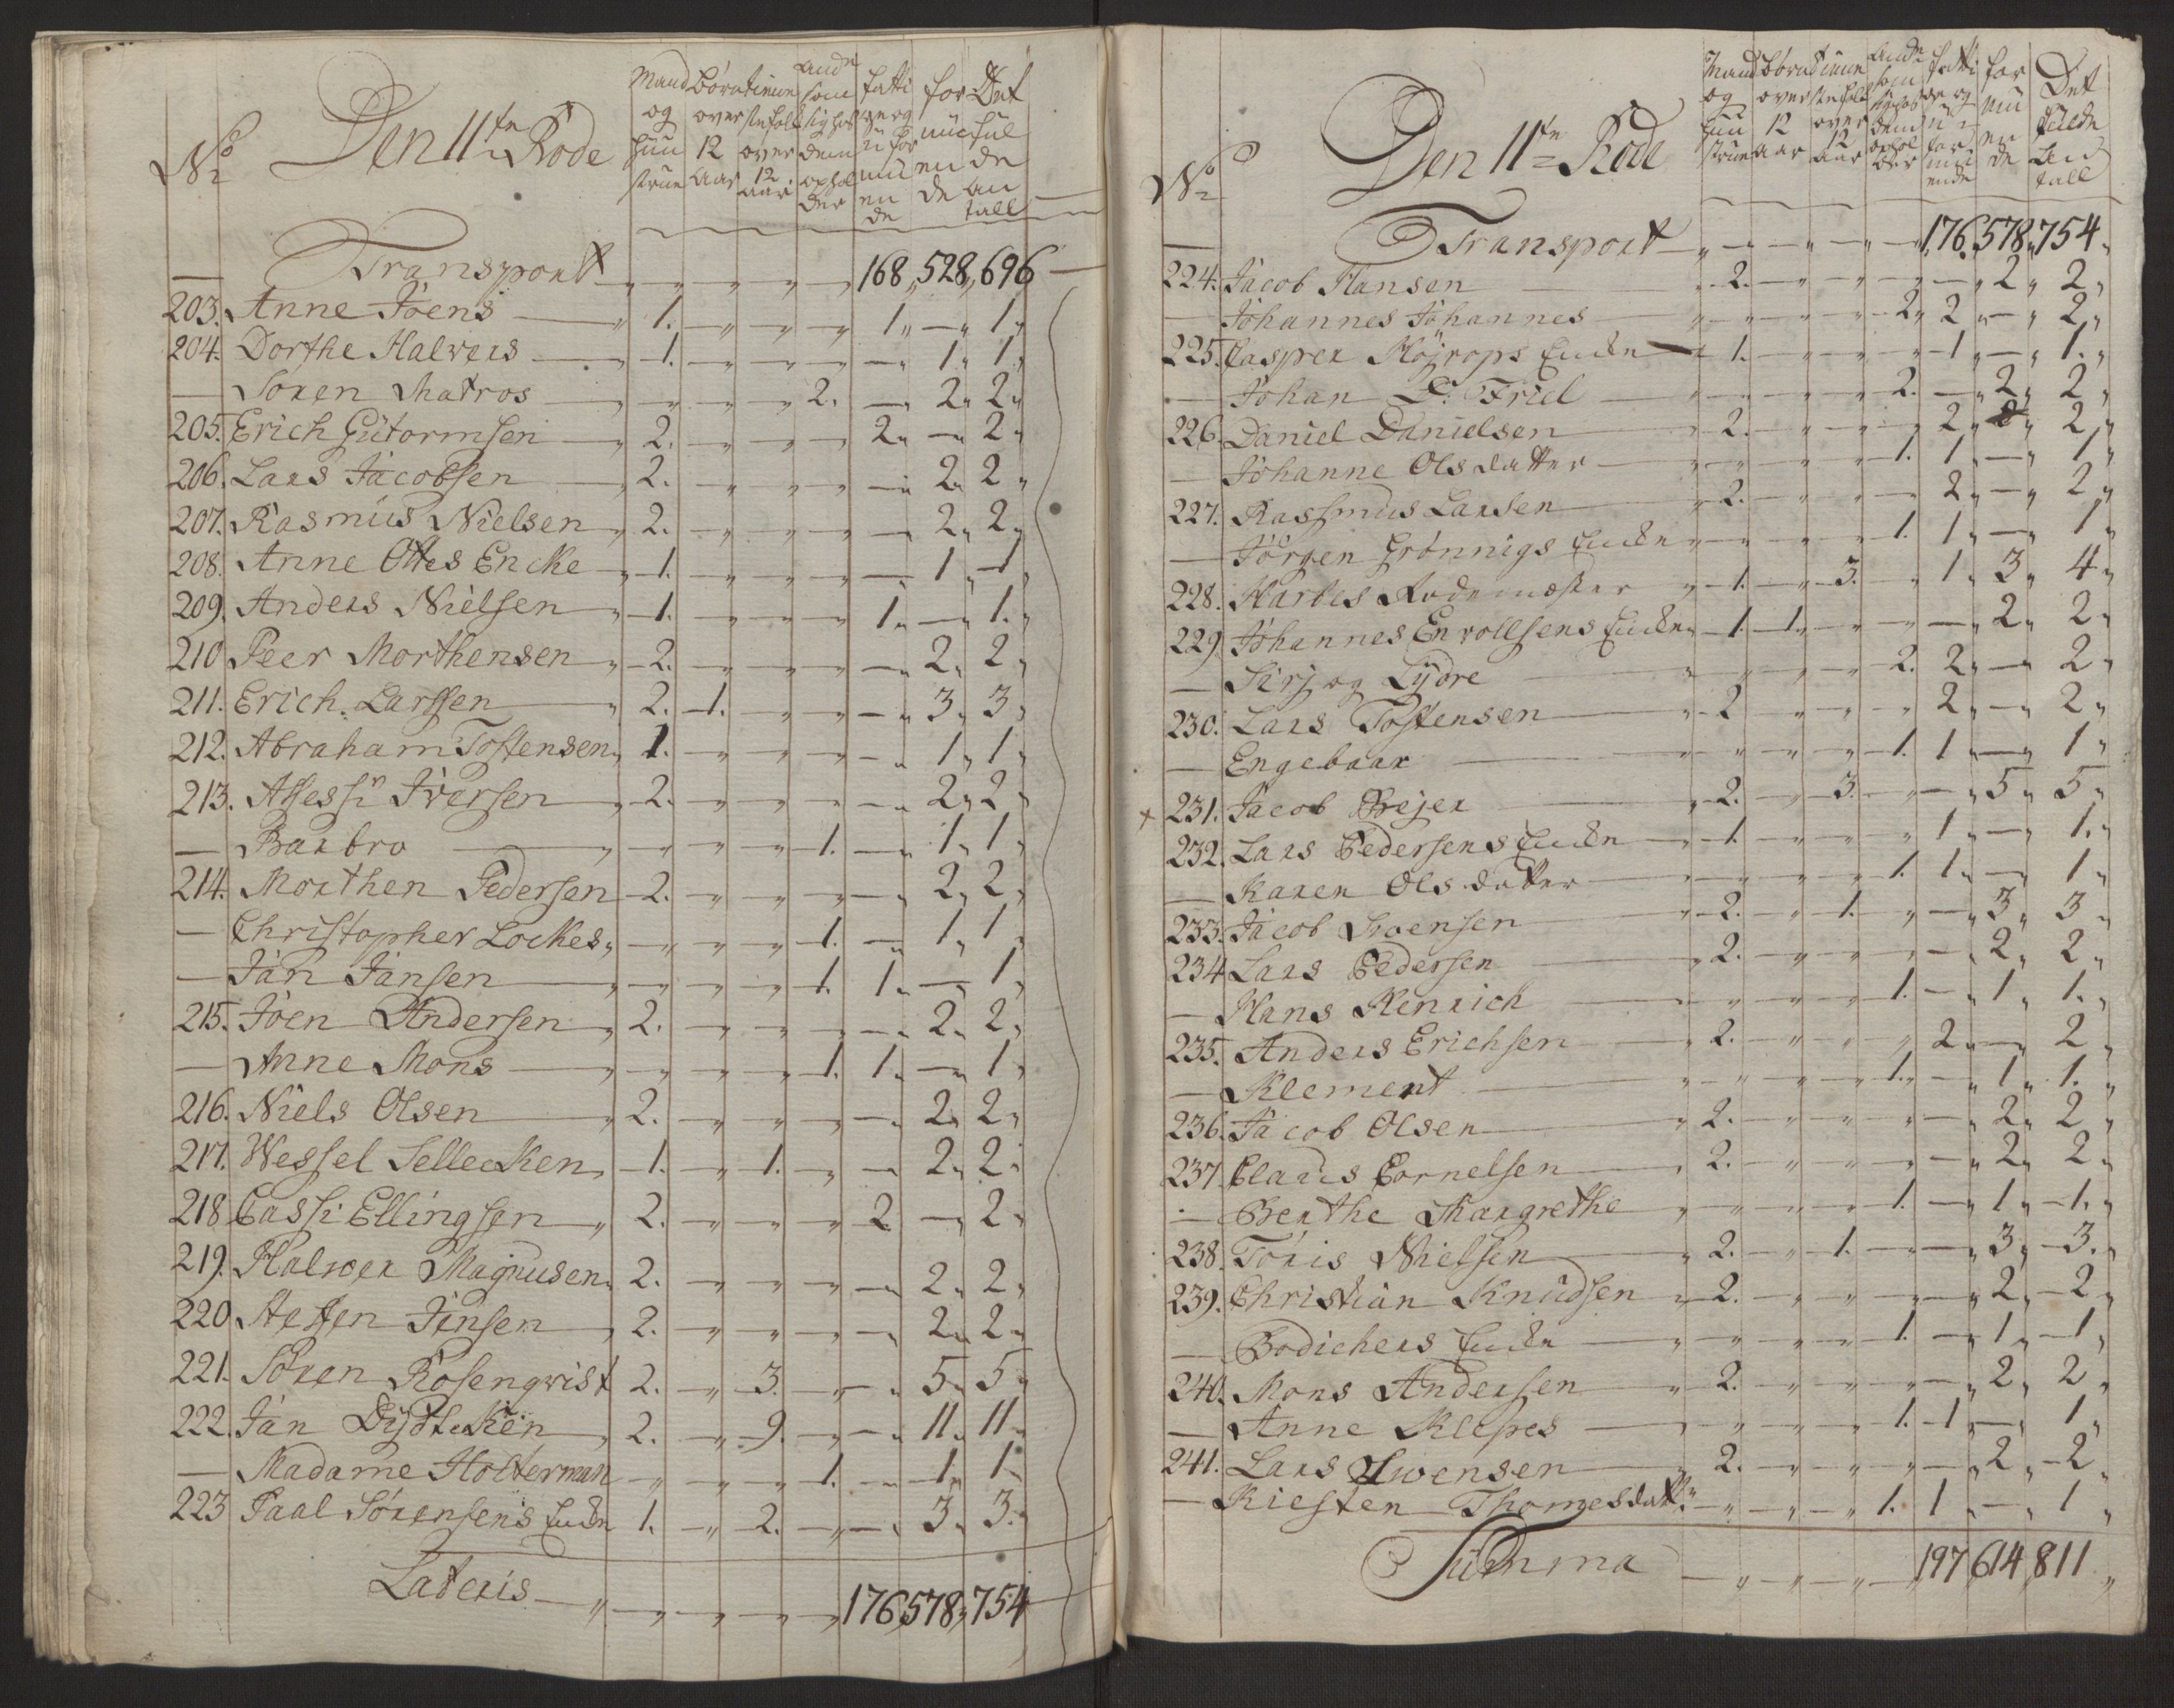 No Den 11te Rode Mand og Hustrue Børn over 12 Aar tienniste folk over 12 aar andre som sig hos dem opholder fatti ge og u for muen de for muen de Det fulde an tall
— Transport " " " " " 168 " 528 " 696
203. Anne Joens " 1. " " " 1 " — " 1 "
204. Dorthe Halvers 1. " " " — " 1 " 1 "
— Soren Matros " " " 2. — " 2 " 2 "
205. Erich Gutormsen " 2. " " " 2 " — " 2 "
206. Lars Jacobsen 2. " " " — " 2 " 2 "
207. Rasmus Nielsen " 2. " " " — " 2 " 2 "
208. Anne Ottes Encke " 1. " " " — " 1 " 1 "
209. Anders Nielsen 1. " " " 1 " — " 1. "
210 Peer Morthensen " 2. " " " — " 2 " 2 "
211. Erich Larssen 2. 1. " " — " 3 " 3 "
212. Abraham Tostensen " 1. " " " — " 1 " 1 "
213. Assessr Iversen " 2. " " " — " 2 " 2 "
— Barbro " " " 1. — " 1 " 1 "
214. Morthen Pedersen 2. " " " — " 2 " 2 "
— Christopher Lockes " " " " 1. — " 1 " 1 "
— Jan Jansen " " " 1. 1 " — " 1 "
215. Joen Andersen 2. " " " — " 2 " 2 "
— Anne Mons " " " 1. 1 " — " 1 "
216. Niels Olsen 2. " " " — " 2 " 2 "
217. Wessel Sellecken 1. " 1. " — " 2 " 2 "
218 Cassi Ellingsen " 2. " " " 2 — " 2 "
219. Halvor Magnusen " 2. " " " — " 2 " 2 "
220 Steffen Jensen 2. " " " — " 2 " 2 "
221. Søren Rosenqvist 2. " 3. " " 5 " 5 "
222. Jan Dyssteken 2. " 9. " — " 11 " 11 "
— Madame Holterman " " " 1. — 1 " 1 "
223 Paal Sörensens Encke 1. " 2. " — " 3 " 3 "
Lateris " " " " " 176 " 578 " 754
No Den 11te Rode Mand og Hu strue børn over 12 aar tienniste folk over 12 aar andre som sig hos dem ophol der fatti ge og u for mu ende for mu en de Det fulde an tall
— Transport " " " " " 176 " 578 " 754 "
224. Jacob Hansen 2. " " " — " 2 " 2 "
— Johannes Johannes " " " 2 " 2 " — " 2 "
225. Casper Höjrops Encke 1. " " " 1 " — " 1. "
— Johan D. Friel " " " 2. — " 2 " 2 "
226. Daniel Danielsen " 2. " " " 2 " " 2 "
— Johanne Olsdatter " " " 1. 1 " — " 1 "
227. Rassmus Larsen " 2. " " " 2 " — " 2 "
— Jörgen Grönnigs Encke " " " 1. 1 " — " 1 "
228. Harbes Rodemester " 1. " 3. " 1 " 3 " 4 "
229. Johannes Enrollsens Encke " 1. 1. " " — " 2 " 2 "
— Sirj og Lydre " " " 2. 2 " — " 2 "
230. Lars Tostensen 2 " " " 2 " — " 2 "
— Engebaar " " " 1. 1 " — " 1 "
x 231. Jacob Brejer " 2. " 3. " — " 5 " 5 "
232. Lars Pedersens Encke 1. " " " 1 " — " 1. "
— Karen Olsdatter " " " 1. 1 " — " 1 "
233. Jacob Svensen " 2. " 1. " — " 3 " 3 "
234 Lars Pedersen " 2. " " " — " 2 " 2 "
— Hans Henrich " " " 1. — " 1 " 1. "
235. Anders Erichsen 2. " " " 2 " — " 2 "
— Klement " " " 1. " — " 1 " 1. "
236. Jacob Olsen 2. " " " — " 2 " 2 "
237. Claus Cornelsen " 2. " " " — " 2 " 2 "
— Berthe Margrethe " " " 1. — " 1 " 1. "
238. Töris Nielsen " 2. " 1. " — " 3 " 3. "
239. Christian Knudsen " 2. " " " — " 2 " 2 "
— Bodichers Encke " " " 1. — " 1 " 1 "
240. Mons Andersen 2. " " " — " 2 " 2 "
— Anne Klepes " " " 1. 1 — " 1 "
241. Lars Swensen 2. " " " — " 2 " 2 "
— Kiesten Thomesdattr " " " 1. 1 " — " 1 "
Summa " " " " 197 614 811 "